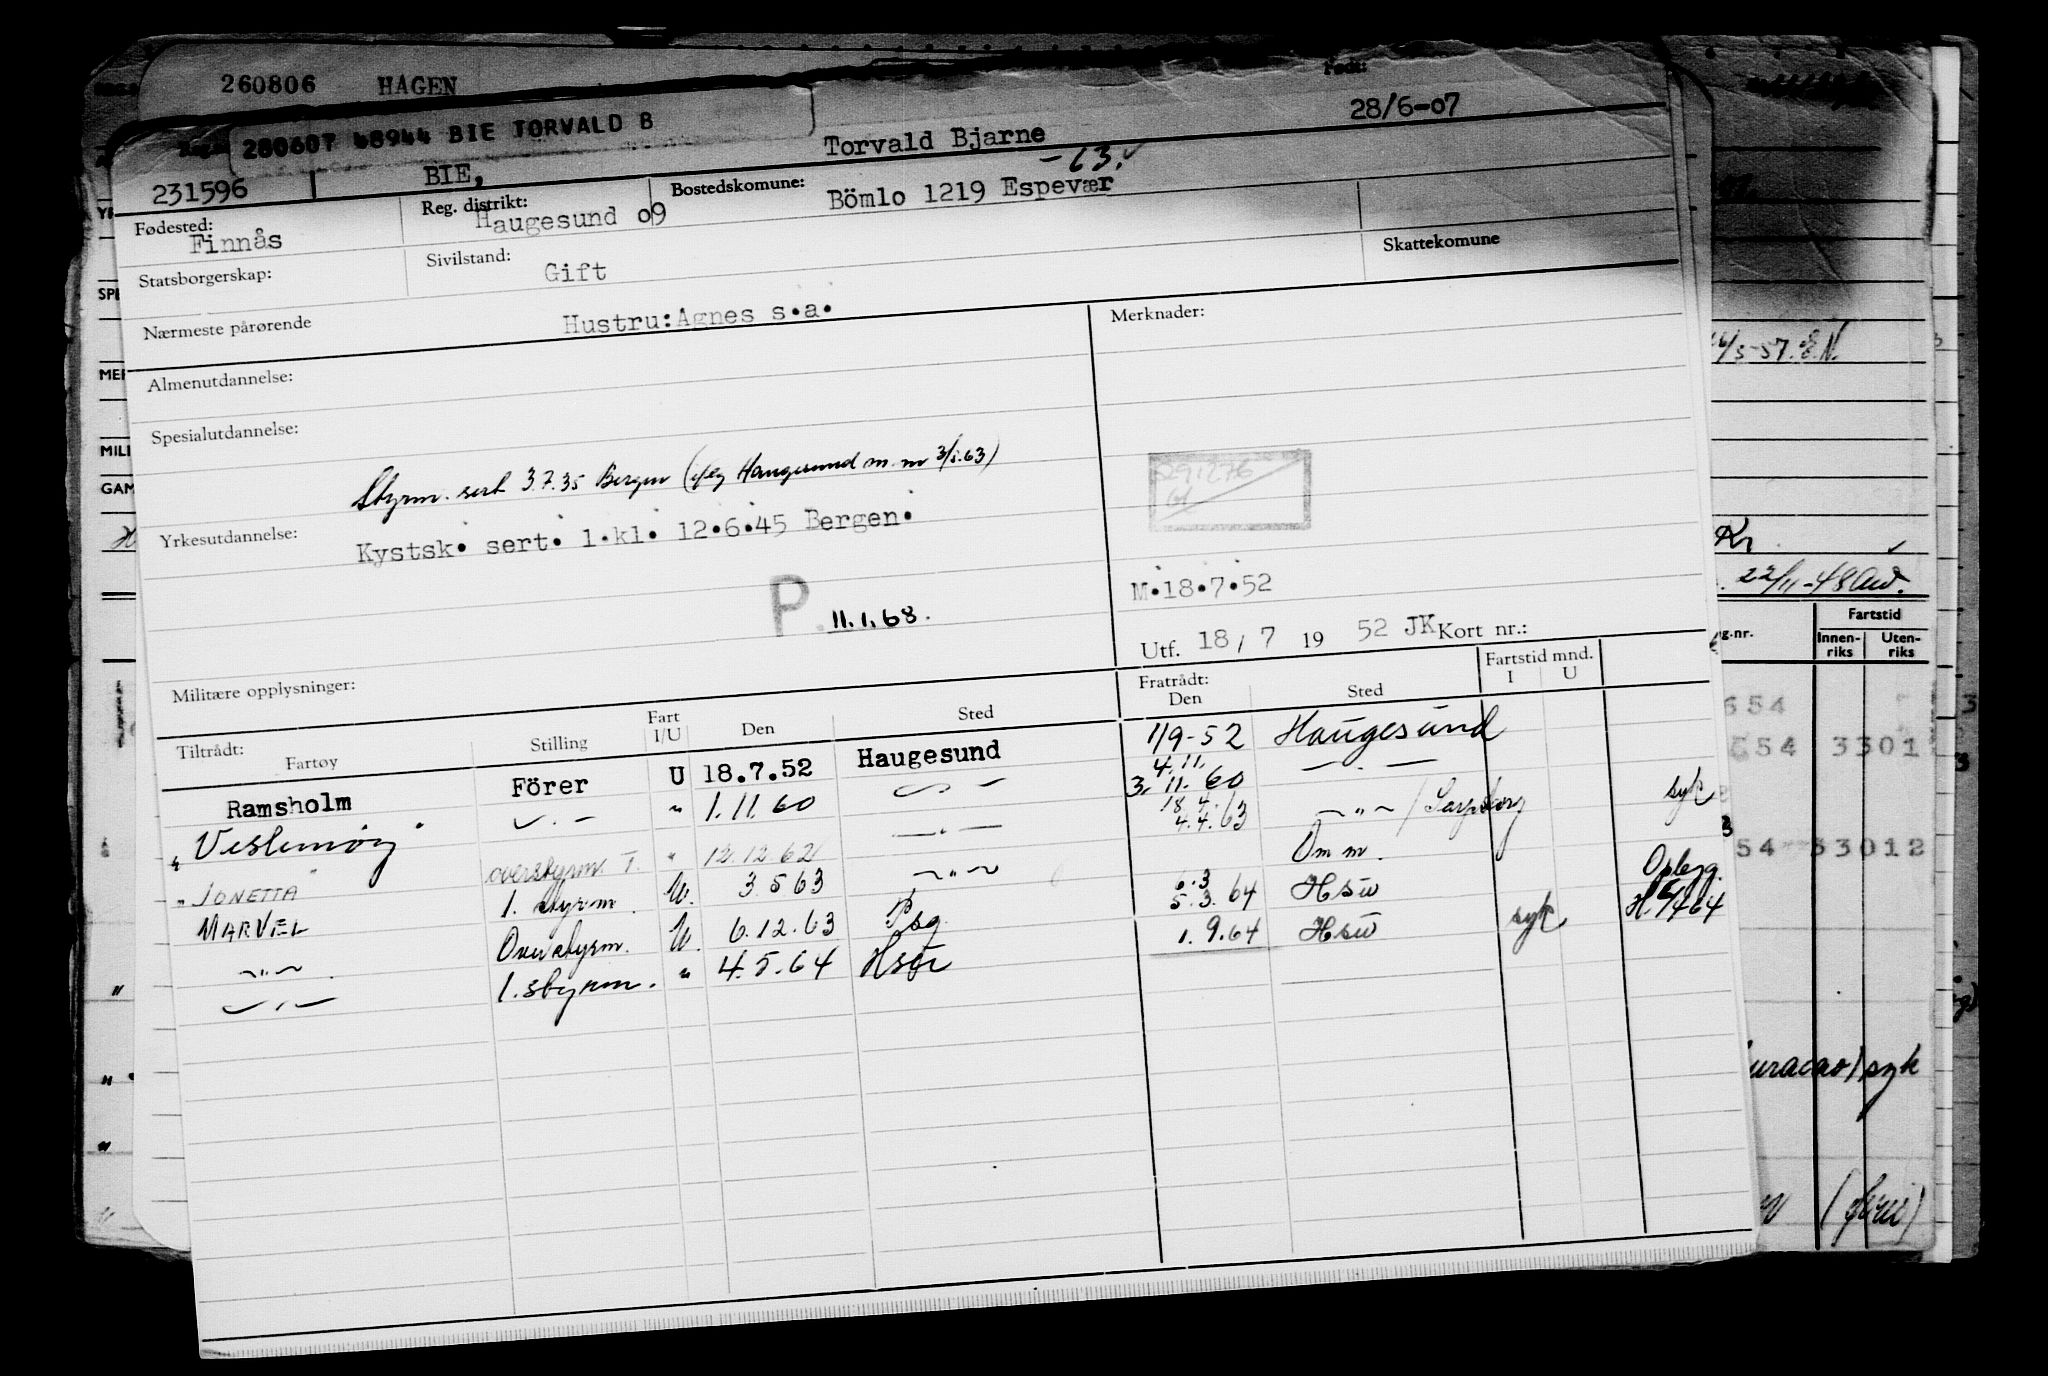 260806 HAGEN
Født:
280607 48944 BIE TORVALD B
28/6-07
BIE, Torvald Bjarne
231596
-63.
Fødested: Finnås
Reg. distrikt: Haugesund 09
Bostedskomune: Bömlo 1219 Espevær
Statsborgerskap:
Sivilstand: Gift
Skattekomune
Nærmeste pårørende Hustru: Agnes s.a.
Merknader:
Almenutdannelse:
Spesialutdannelse:
Styrm. sert 3.7.35 Bergen ( Haugesund m.m 3/5.63)
Yrkesutdannelse: Kystsk. sert. 1.kl. 12.6.45 Bergen.
291276
M.18.7.52
P. 11.1.68.
Utf. 18/7 19 52 JK Kort nr.:
Militære opplysninger:
Tiltrådt: Fartøy Stilling Fart I/U Den Sted Fratrådt: Den Sted Fartstid mnd. I U
Ramsholm Förer U 18.7.52 Haugesund 1/9-52 Haugesund
" — " — " 1.11.60 — " — 4.11. 3.11.60 — " —
" JONETTA" overstyrm. T. " 12.12.62 — " — 18.4. 4.4.63 — " — / Sarpsborg syk
MARVEL 1. styrm. U. 3.5.63 — " — Om m.
— " — Overstyrm. U. 6.12.63 Psg 6.3 5.3.64 Hsu
— " — 1. styrm. " 4.5.64 Hsu 1.9.64 Hsu syk
26/5-57. E.N.
Kr
22/11-48
Fartstid
g.nr. Innen- riks Uten- riks
654
654 3301
54 33012
Curacao) syk
SPE
MILI
GAM